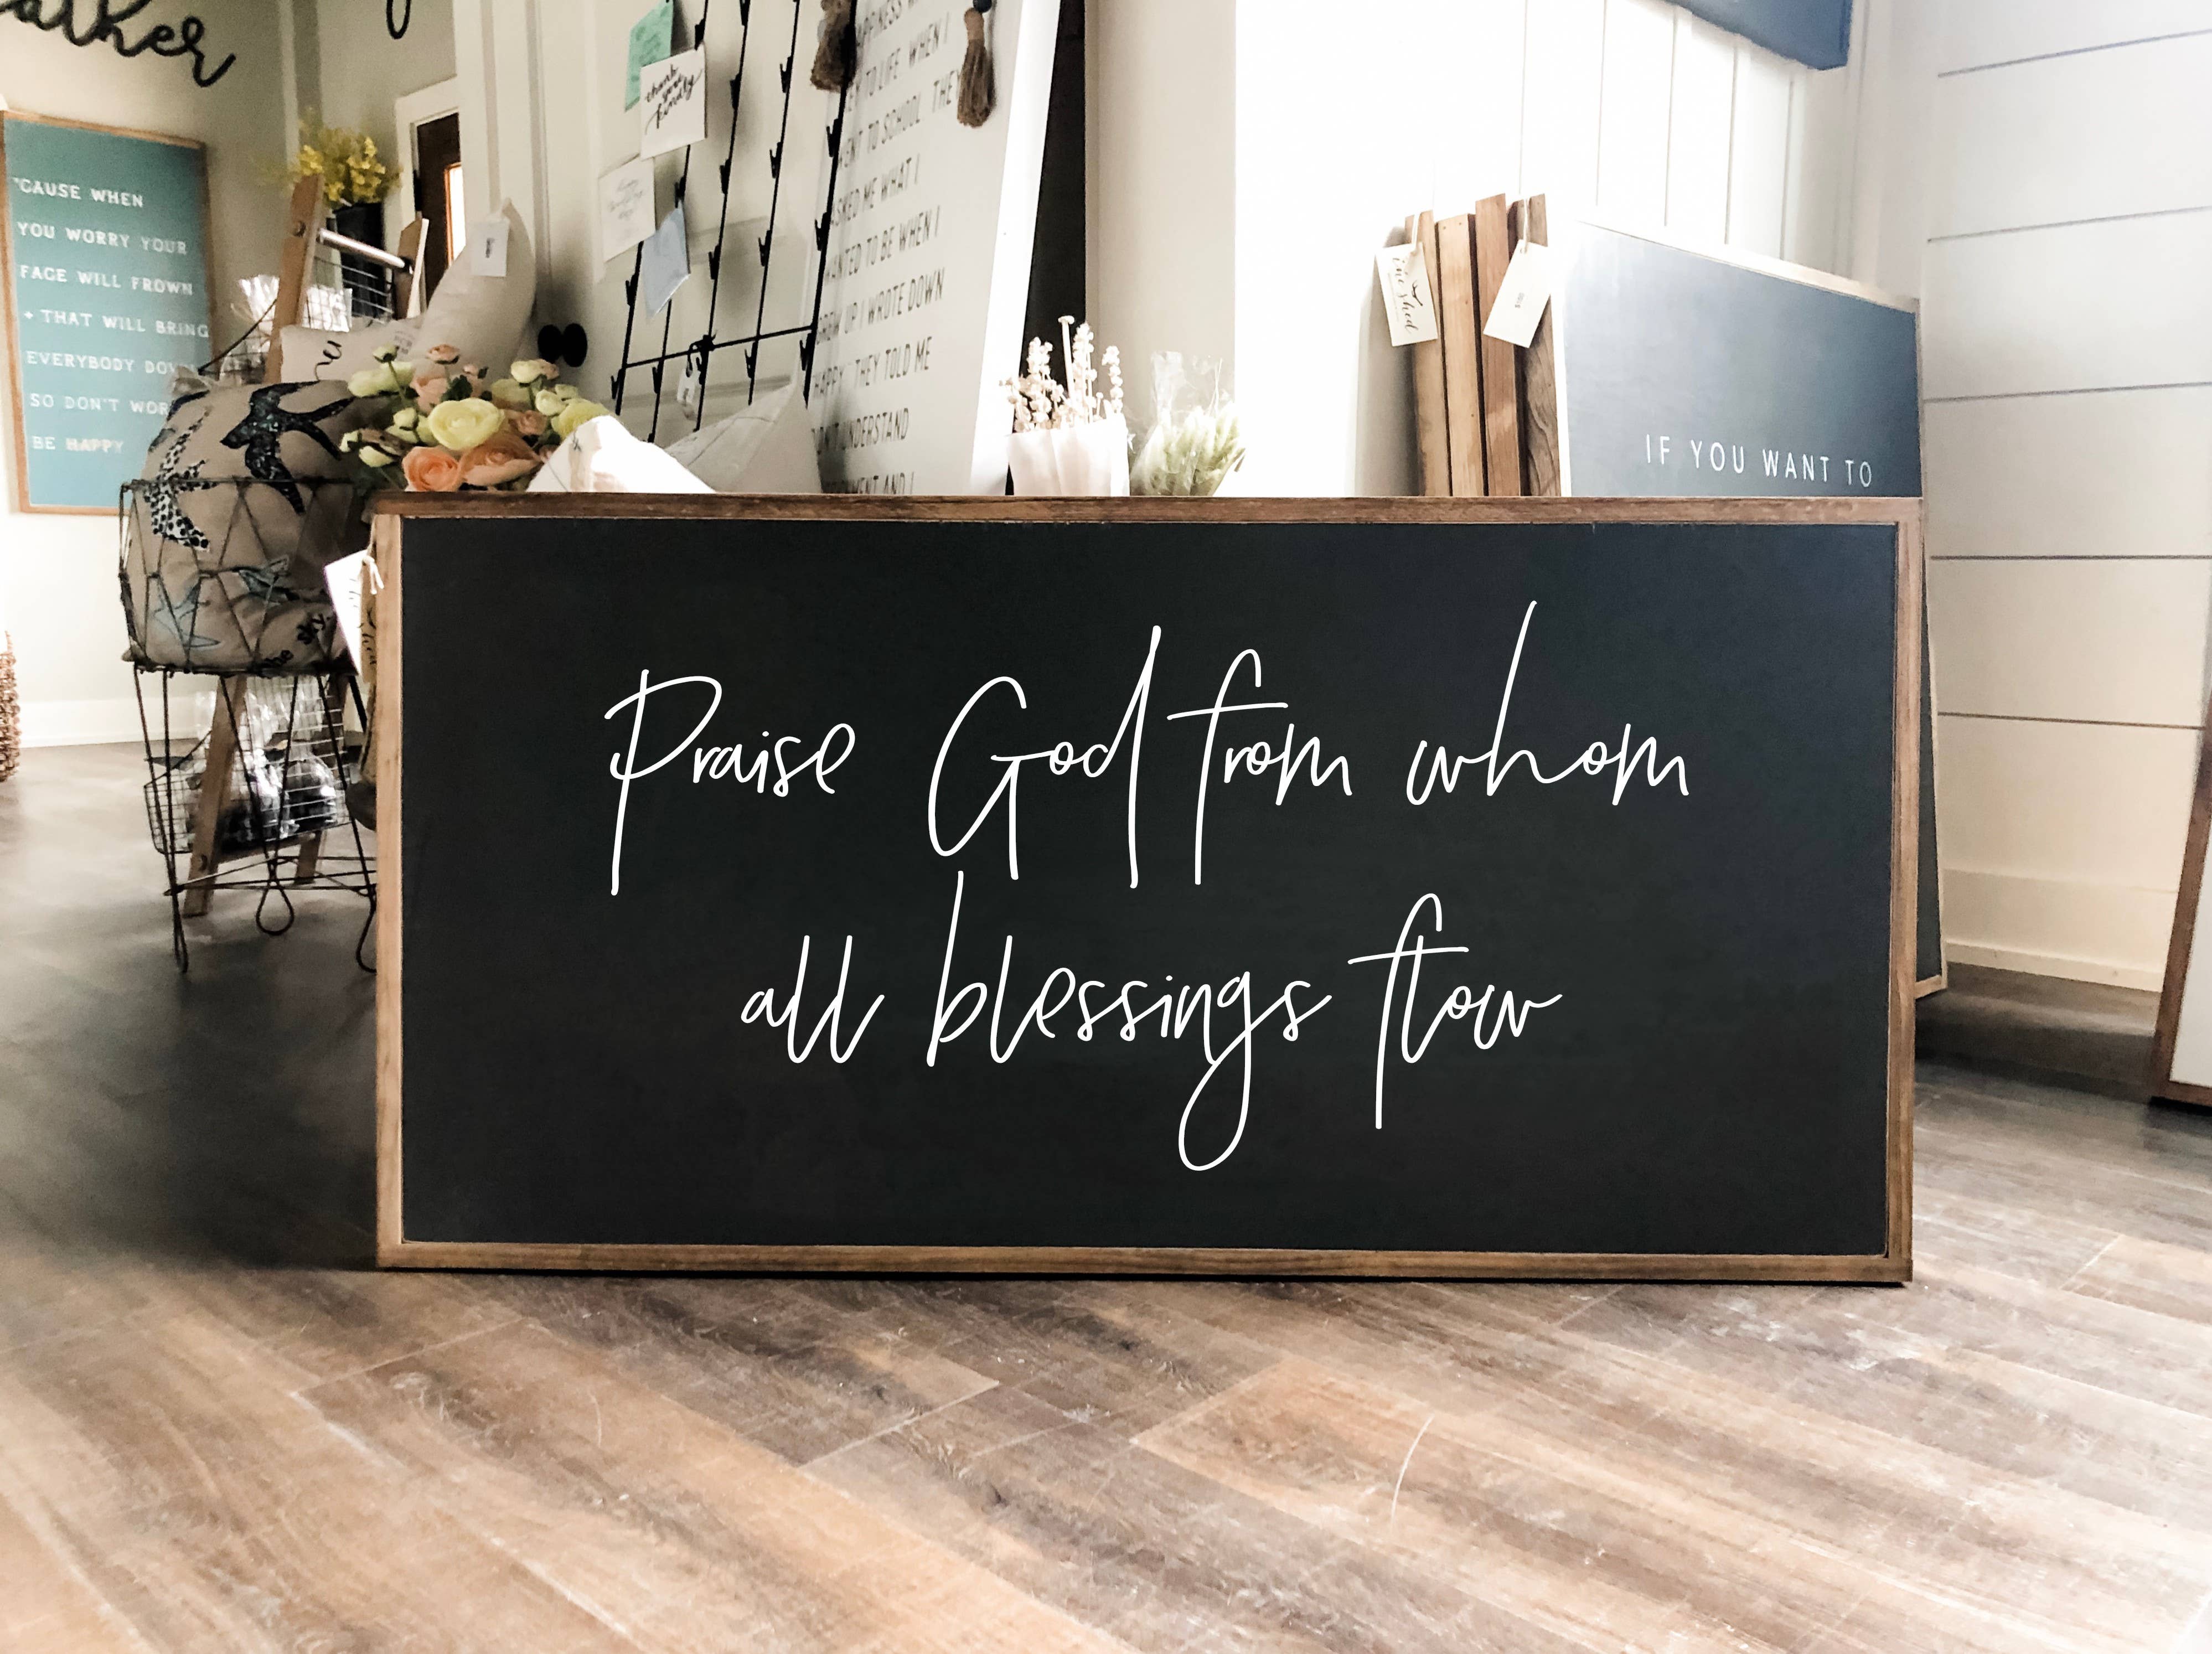 ather
'CAUSE WHEN
YOU WORRY YOUR
FACE WILL FROWN
+ THAT WILL BRING
EVERYBODY
SO DON'T
BE HAPPY
thank
you
kindly
TO LIFE. WHEN I
TO SCHOOL, THEY
ASKED ME WHAT I
WANTED TO BE WHEN I
GREW UP. I WROTE DOWN
"HAPPY." THEY TOLD ME
UNDERSTAND
AND I
IF YOU WANT TO
Praise God from whom
all blessings flow